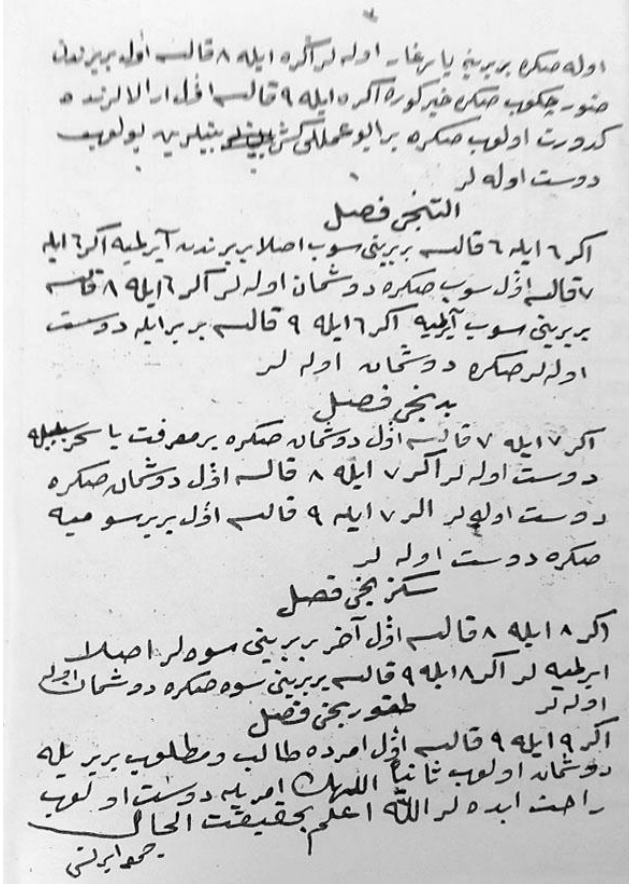 اوله صكره بربرينه يار غار اوله لر اكر ه ايله ٨ قالسه اوّل بربرندن
صكره خير كوره اكر ه ايله ٩ قالسه اوّل ارالرنده
كدورت اولوب صكره بر ايو عمللى
دوست اوله لر
التنجى فصل
اكر ٦ ايله ٦ قالسه بربرينى سوب اصلا بربرندن آيرلميه اكر ٦ ايله
٧ قالسه اوّل سوب صكره دوشمان اوله لر اكر ٦ ايله ٨ قالسه
بربرينى سوب آيرلميه اكر ٦ ايله ٩ قالسه بربر ايله دوست
اوله لر صكره دوشمان اوله لر
يدنجى فصل
اكر ٧ ايله ٧ قالسه اوّل دوشمان صكره بر معرفت يا سحر سببيله
دوست اوله لر اكر ٧ ايله ٨ قالسه اوّل دوشمان صكره
دوست اوله لر اكر ٧ ايله ٩ قالسه اوّل بربر سوميه
صكره دوست اوله لر
سكزنجى فصل
اكر ٨ ايله ٨ قالسه اوّل آخر بربرينى سوه لر اصلا
ايرلميه لر اكر ٨ ايله ٩ قالسه بربرينى سوه صكره دوشمان اوله
اوله لر
طقوزنجى فصل
اكر ٩ ايله ٩ قالسه اوّل امرده طالب ومطلوب بربريله
دوشمان اولوب ثانياً اللهك امريله دوست اولوب
راحت ايده لر الله اعلم بحقيقت الحال